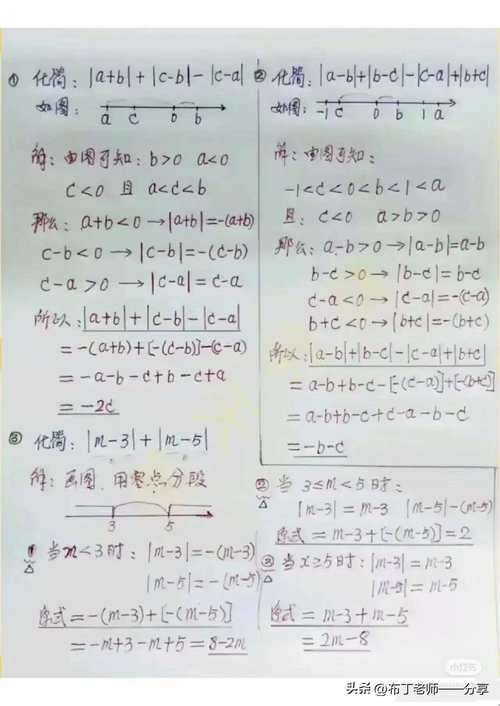 ① 化简: |a+b|+|c-b|-|c-a|
如图:
a c 0 b
解: 由图可知: b>0 a<0
c<0 且 a<c<b
那么: a+b<0→|a+b|=-(a+b)
c-b<0→|c-b|=-(c-b)
c-a>0→|c-a|=c-a
所以: |a+b|+|c-b|-|c-a|
=-(a+b)+[-(c-b)]-(c-a)
=-a-b-c+b-c+a
=-2c
② 化简: |a-b|+|b-c|-|c-a|+|b+c|
如图:
-1 c 0 b 1 a
解: 由图可知:
-1<c<0<b<1<a
且: c<0 a>b>0
那么: a-b>0→|a-b|=a-b
b-c>0→|b-c|=b-c
c-a<0→|c-a|=-(c-a)
b+c<0→|b+c|=-(b+c)
所以: |a-b|+|b-c|-|c-a|+|b+c|
=a-b+b-c-[-(c-a)]+[-(b+c)]
=a-b+b-c+c-a-b-c
=-b-c
③ 化简: |m-3|+|m-5|
解: 画图、用零点分段
3 5
① 当m<3时: |m-3|=-(m-3)
|m-5|=-(m-5)
原式=-(m-3)+[-(m-5)]
=-m+3-m+5=8-2m
② 当 3≤m<5时:
|m-3|=m-3 |m-5|-(m-5)
原式=m-3+[-(m-5)]=2
③ 当x≥5时: |m-3|=m-3
|m-5|=m-5
原式=m-3+m-5
=2m-8
小红书
头条 @布丁老师——分享